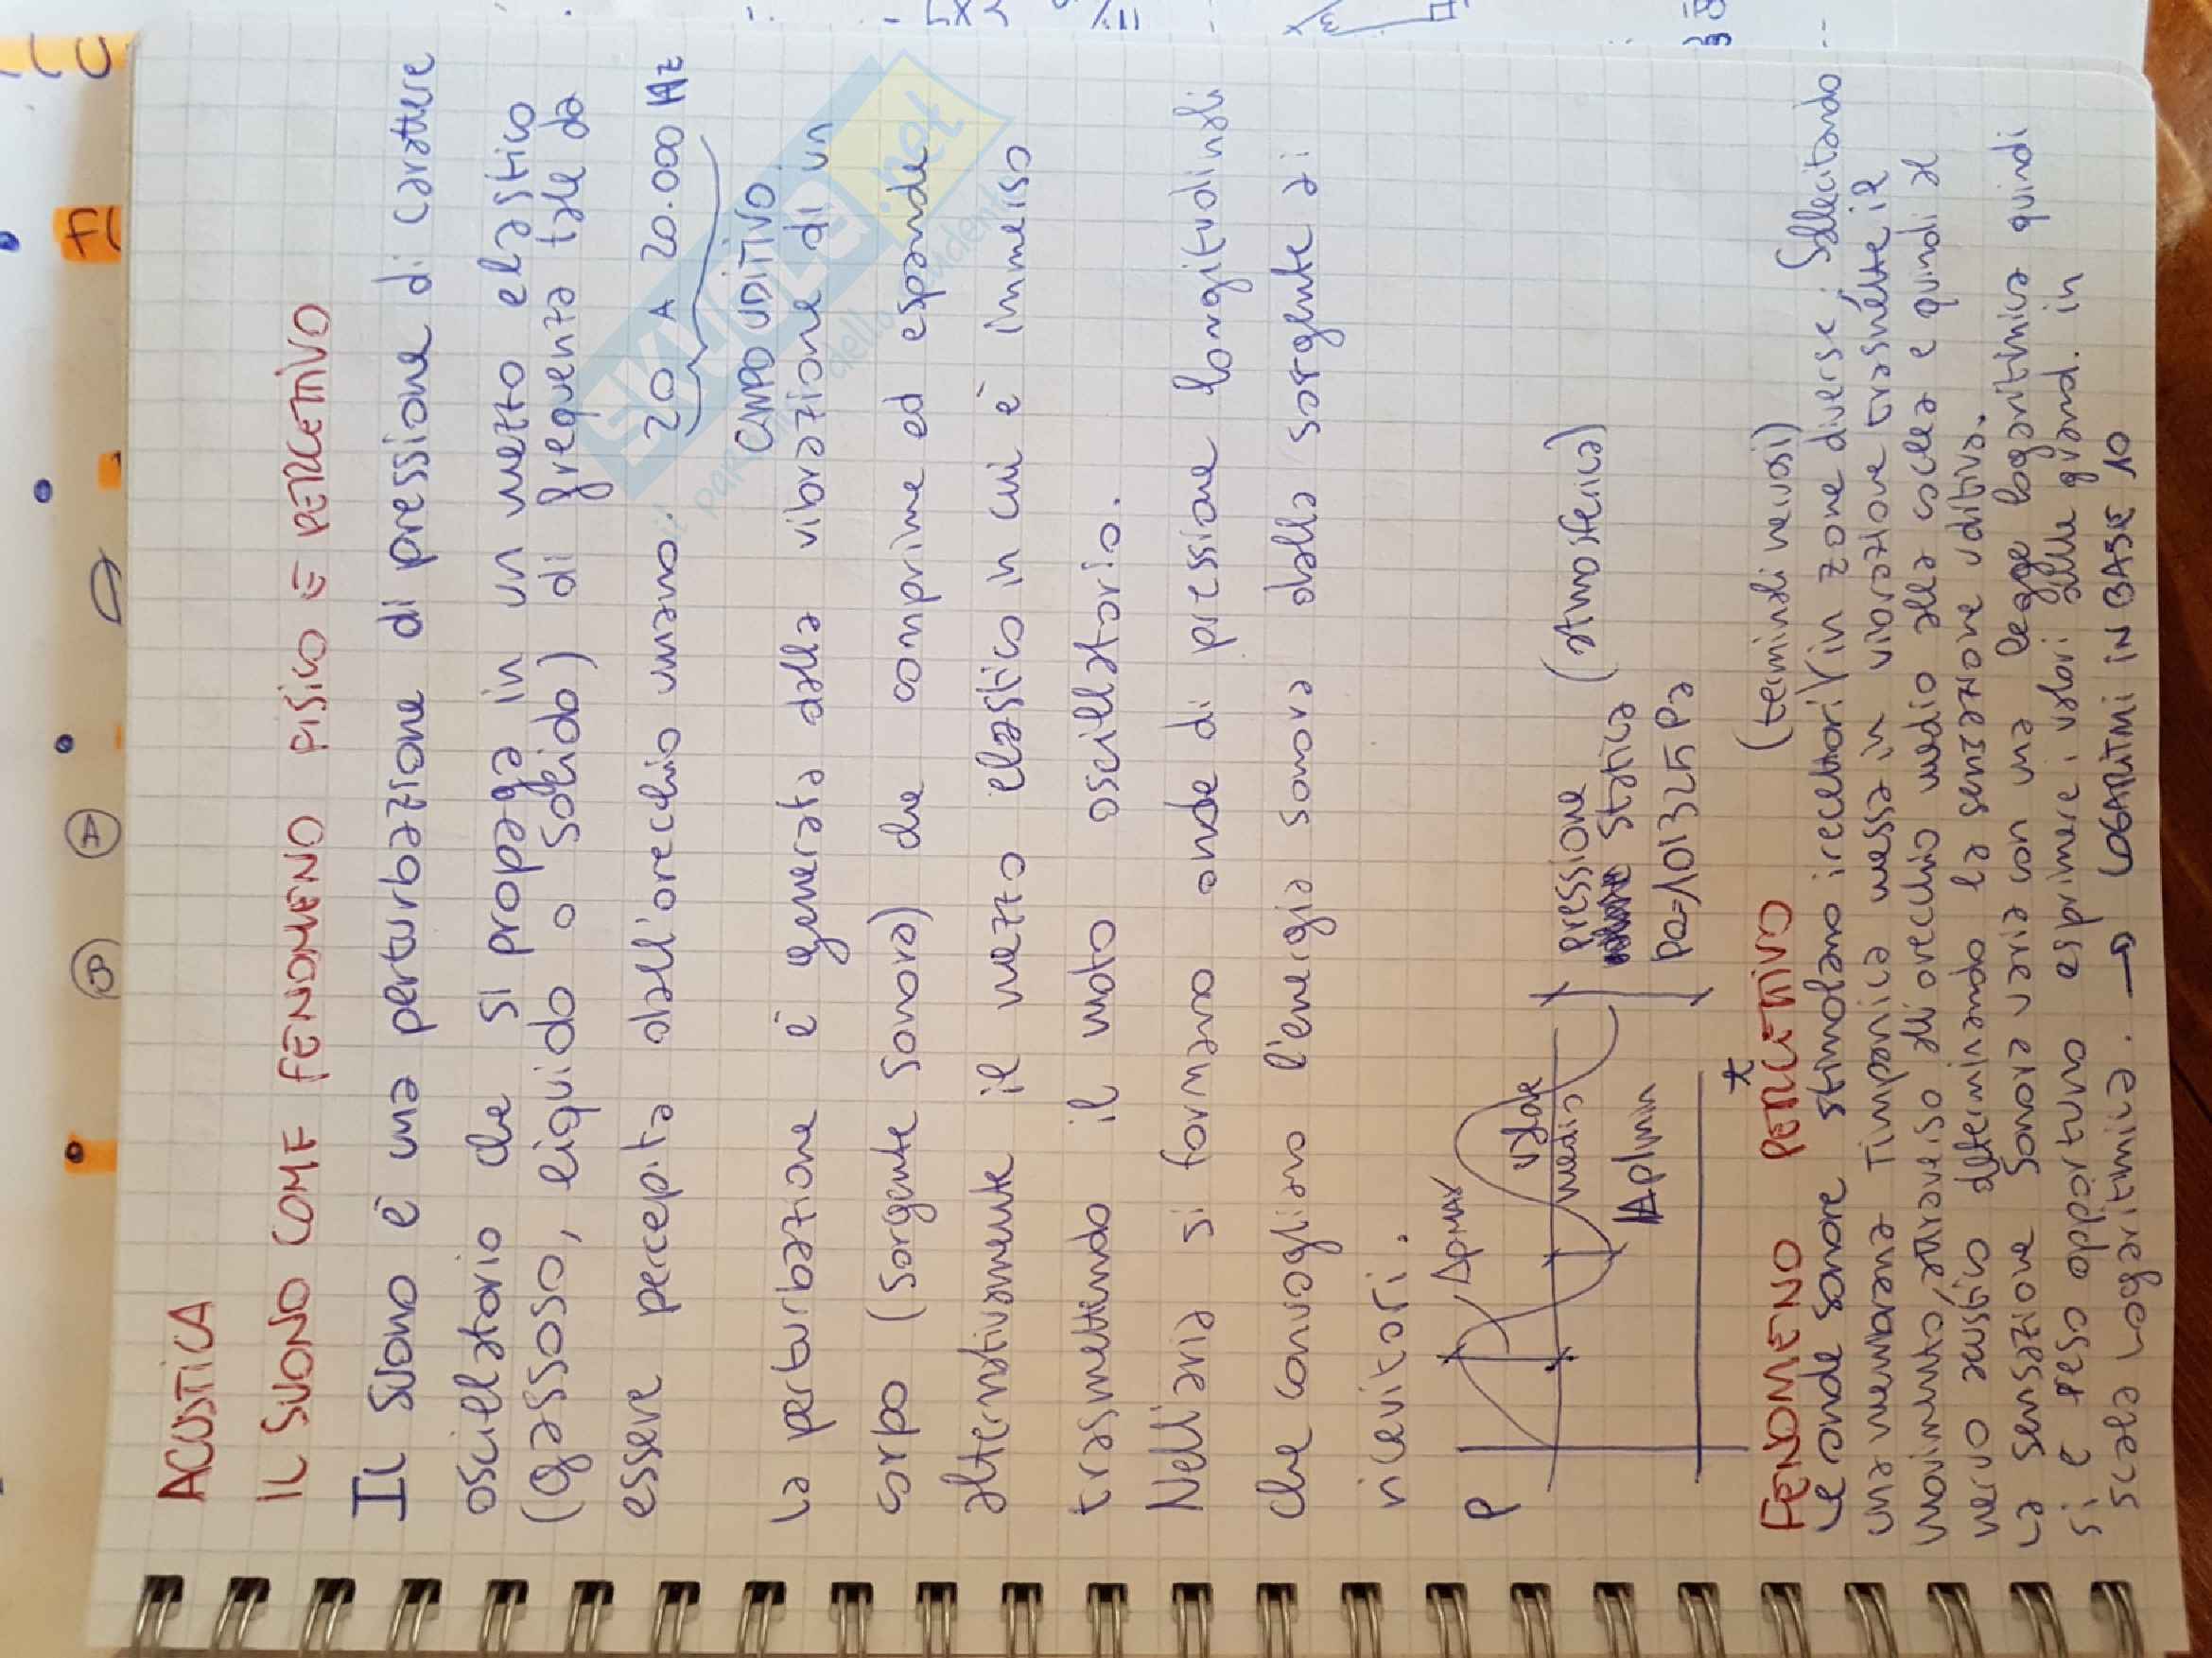 ACUSTICA
IL SUONO COME FENOMENO FISICO E PERCETTIVO
Il suono è una perturbazione di pressione di carattere
oscillatorio che si propaga in un mezzo elastico
(gassoso, liquido o solido) di frequenza tale da
essere percepita dall'orecchio umano. 20 A 20.000 Hz
CAMPO UDITIVO
La perturbazione è generata dalla vibrazione di un
corpo (sorgente sonora) che comprime ed espande
alternativamente il mezzo elastico in cui è immerso
trasmettendo il moto oscillatorio.
Nell'aria si formano onde di pressione longitudinali
che convogliano l'energia sonora dalla sorgente ai
ricevitori.
P
ΔpMAX
valore
medio
Δpmin
t
pressione
statica (atmosferica)
pa=101325 Pa
FENOMENO PERCETTIVO (terminali nervosi)
Le onde sonore stimolano i recettori in zone diverse: Sollecitando
una membrana Timpanica messa in vibrazione trasmette il
movimento, attraverso all'orecchio medio alla coclea e quindi al
nervo acustico determinando la sensazione uditiva.
La sensazione Sonora varia con una legge logaritmica quindi
si è reso opportuno esprimere i valori delle grand. in
scala logaritmica. → LOGARITMI IN BASE 10
FI
A
B
SKUOLA.net
il paradiso dello studente